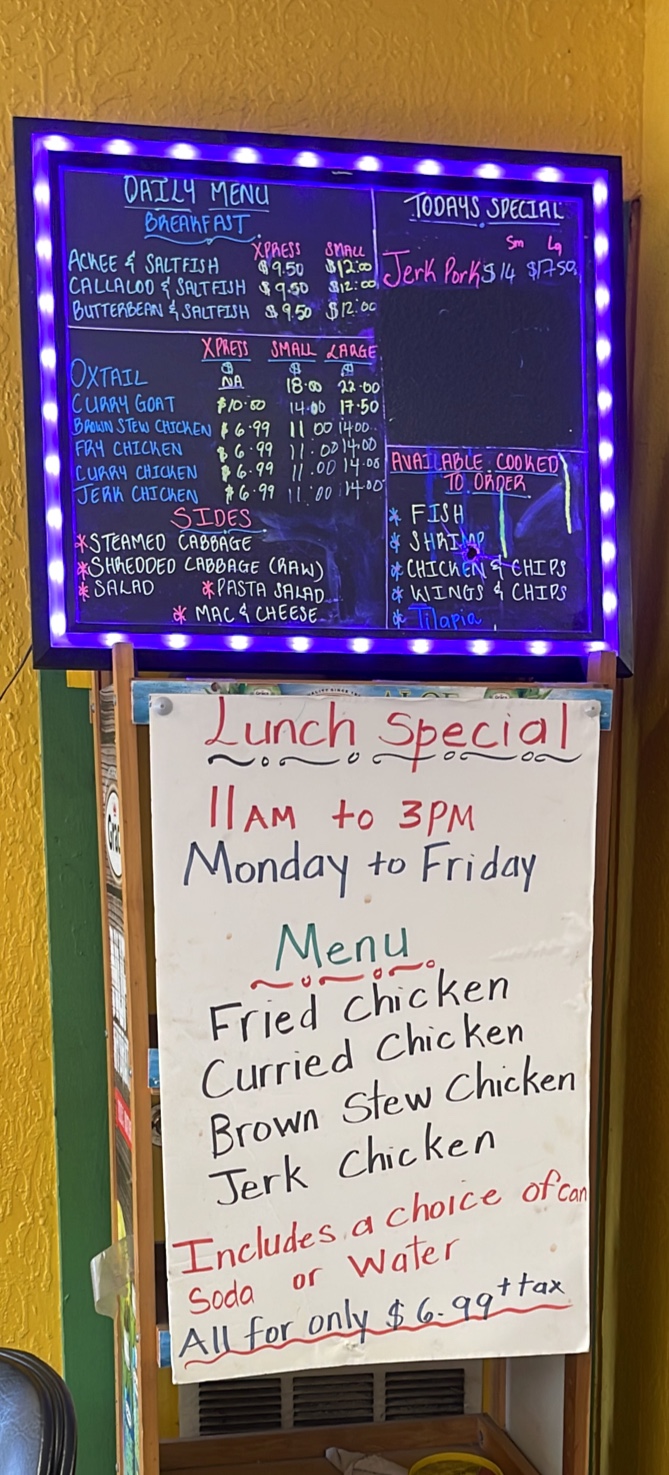 DAILY MENU
BREAKFAST
XPRESS SMALL
ACKEE & SALTFISH $9.50 $12:00
CALLALOO & SALTFISH $9.50 $12:00
BUTTERBEAN & SALTFISH $9.50 $12:00
XPRESS SMALL LARGE
$ $ $
OXTAIL NA 18.00 22.00
CURRY GOAT $10.00 14.00 17.50
BROWN STEW CHICKEN $6.99 11 00 14.00
FRY CHICKEN $6.99 11.00 14.00
CURRY CHICKEN $6.99 11.00 14.00
JERK CHICKEN $6.99 11.00 14.00
SIDES
*STEAMED CABBAGE
*SHREDDED CABBAGE (RAW)
*SALAD *PASTA SALAD
* MAC & CHEESE
TODAYS SPECIAL
Sm Lg
Jerk Pork $14 $17.50
AVAILABLE COOKED
TO ORDER
* FISH
* SHRIMP
* CHICKEN & CHIPS
* WINGS & CHIPS
* Tilapia
Lunch Special
11AM to 3PM
Monday to Friday
Menu
Fried Chicken
Curried Chicken
Brown Stew Chicken
Jerk Chicken
Includes a choice of can
Soda or Water
All for only $6.99 + tax